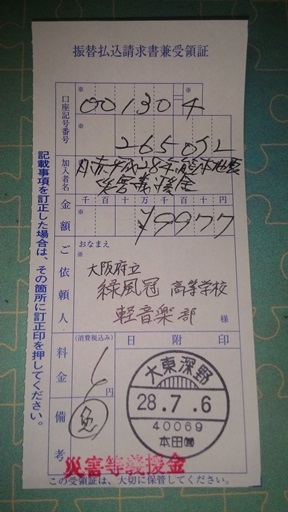 振替払込請求書兼受領証
口座記号番号
00130-4
265072
加入者名
日赤平成28年熊本地震
災害義援金
金額
千百十万千百十円
¥9977
ご依頼人
おなまえ
大阪府立
緑風冠 高等学校
軽音楽部
様
料金
(消費税込み)
円
日附印
大東深野
28.7.6
40069
本田
備考
免
災害等義援金
この受領証は、大切に保管してください。
記載事項を訂正した場合は、その箇所に訂正印を押してください。